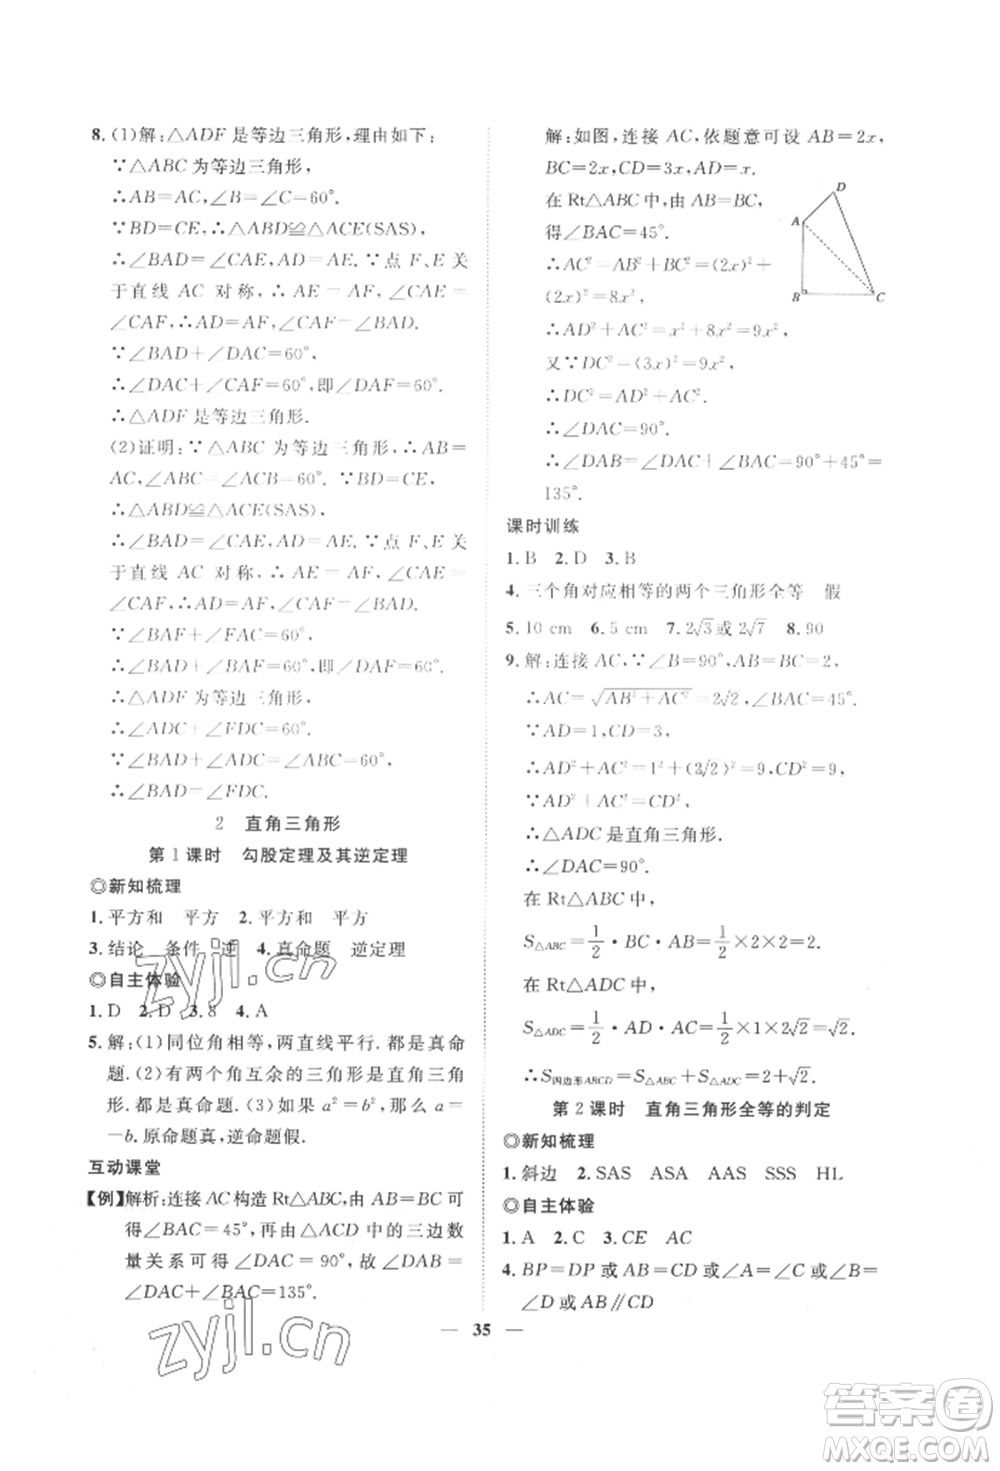 8. (1)解:△ADF 是等边三角形,理由如下:
∵△ABC 为等边三角形,
∴AB=AC,∠B=∠C=60°.
∵BD=CE,∴△ABD≌△ACE(SAS),
∴∠BAD=∠CAE,∵点 F、E 关
于直线 AC 对称,∴AE=AF,∠CAE=
∠CAF,∴AD=AF,∠CAF=∠BAD.
∵∠BAD+∠DAC=60°,
∴∠DAC+∠CAF=60°,即∠DAF=60°.
∴△ADF 是等边三角形.
(2)证明:∵△ABC 为等边三角形,∴AB=
AC,∠ABC=∠BAC=∠C=60°.
∴△ABD≌△ACE(SAS),
∴∠BAD=∠CAE,∵点 F、E 关于
直线 AC 对称,∴AE=AF,∠CAE=
∠CAF,∴∠BAD=∠CAF.
∵∠BAF+∠FAC=60°,
∴∠BAD+∠BAF=60°,即∠FAD=60°.
∴△ADF 为等边三角形.
∴∠ADC+∠FDC=60°.
∵∠BAD+∠ADC=∠ABC=60°,
∴∠BAD=∠FDC.
2 直角三角形
第 1 课时 勾股定理及其逆定理
◎新知梳理
1. 平方和 平方 2. 平方和 平方
3. 结论 条件 逆 4. 真命题 逆定理
◎自主体验
1. D 2. D 3. 8 4. A
5. 解:(1)同位角相等,两直线平行. 都是真命
题.(2)有两个角互余的三角形是直角三角
形.都是真命题.(3)如果 a²=b²,那么 a=
-b.原命题真,逆命题假.
互动课堂
【例】解析:连接 AC 构造 Rt△ABC,由 AB=BC 可
得∠BAC=45°,再由△ACD 中的三边数
量关系可得∠DAC=90°,故∠DAB=
∠DAC+∠BAC=135°.
解:如图,连接 AC,依题意可设 AB=2x,
BC=2x,CD=3x,AD=x.
在 Rt△ABC 中,由 AB=BC,
得∠BAC=45°.
∴AC²=AB²+BC²=(2x)²+
(2x)²=8x².
∴AD²+AC²=x²+8x²=9x².
又∵DC²=(3x)²=9x²,
∴DC²=AD²+AC².
∴∠DAC=90°.
∴∠DAB=∠DAC+∠BAC=90°+45°=
135°.
D
A
B
C
课时训练
1. B 2. D 3. B
4. 三个角对应相等的两个三角形全等 假
5. 10 cm 6. 5 cm 7. 2√3或2√7 8. 90
9. 解:连接 AC,∵∠B=90°,AB=BC=2,
∴AC=√AB²+AC²=2√2,∠BAC=45°.
∵AD=1,CD=3,
∴AD²+AC²=1²+(2√2)²=9,CD²=9.
∴AD²+AC²=CD².
∴△ADC 是直角三角形.
∴∠DAC=90°.
在 Rt△ABC 中,
S△ABC=1/2·BC·AB=1/2×2×2=2.
在 Rt△ADC 中,
S△ADC=1/2·AD·AC=1/2×1×2√2=√2.
∴S四边形ABCD=S△ABC+S△ADC=2+√2.
第 2 课时 直角三角形全等的判定
◎新知梳理
1. 斜边 2. SAS ASA AAS SSS HL
◎自主体验
1. A 2. C 3. CE AC
4. BP=DP 或 AB=CD 或∠A=∠C 或∠B=
∠D 或 AB∥CD
35
zyjl.cn
zyjl.cn
答案卷
MXQE.COM